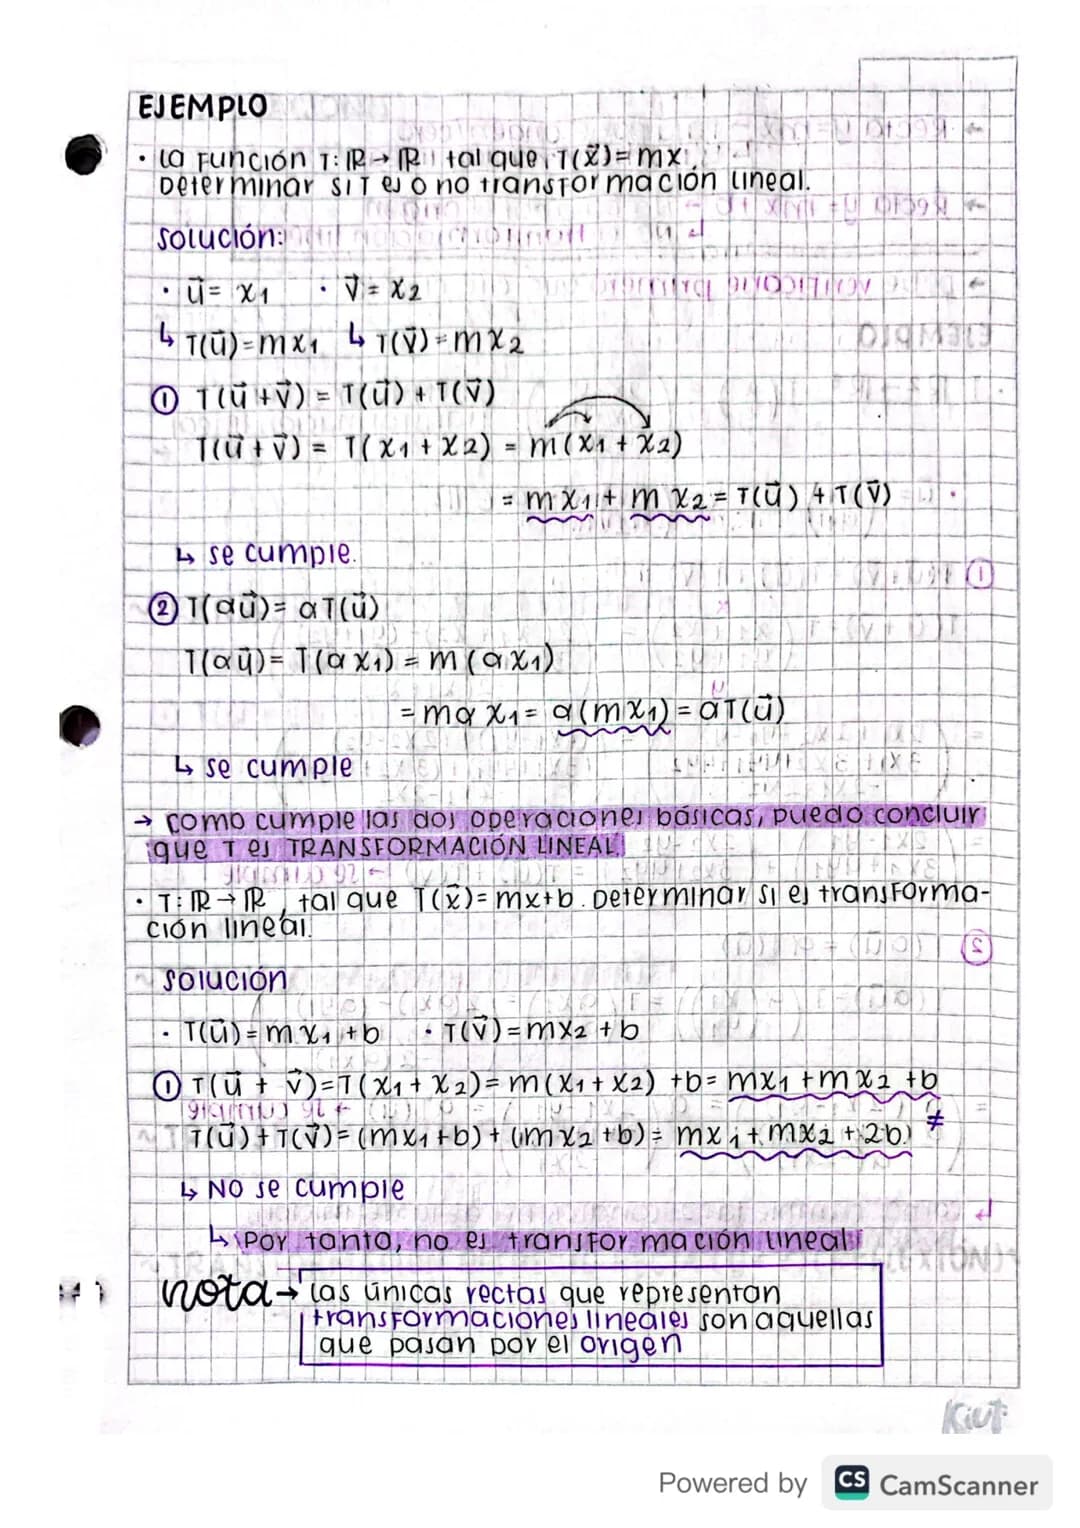 EJEMPLO
· La función T: ℝ → ℝ tal que T(x⃗) = mx.
Determinar si T es o no transformación lineal.
Solución:
· u⃗ = x₁ · v⃗ = x₂
↳ T(u⃗) = mx₁ ↳ T(v⃗) = mx₂
① T(u⃗ + v⃗) = T(u⃗) + T(v⃗)
T(u⃗ + v⃗) = T(x₁ + x₂) = m(x₁ + x₂)
= mx₁ + mx₂ = T(u⃗) + T(v⃗)
↳ se cumple.
② T(αu⃗) = αT(u⃗)
T(αu⃗) = T(αx₁) = m(αx₁)
= mαx₁ = α(mx₁) = αT(u⃗)
↳ se cumple
→ como cumple las dos operaciones básicas, puedo concluir
que T es TRANSFORMACIÓN LINEAL
· T: ℝ → ℝ, tal que T(x⃗) = mx+b. Determinar si es transforma-
ción lineal.
Solución
· T(u⃗) = mx₁ + b · T(v⃗) = mx₂ + b
① T(u⃗ + v⃗) = T(x₁ + x₂) = m(x₁ + x₂) + b = mx₁ + mx₂ + b
≠
T(u⃗) + T(v⃗) = (mx₁ + b) + (mx₂ + b) = mx₁ + mx₂ + 2b
↳ NO se cumple
↳ Por tanto, no es transformación lineal
nota → las únicas rectas que representan
transformaciones lineales son aquellas
que pasan por el origen
Kiut
Powered by CS CamScanner